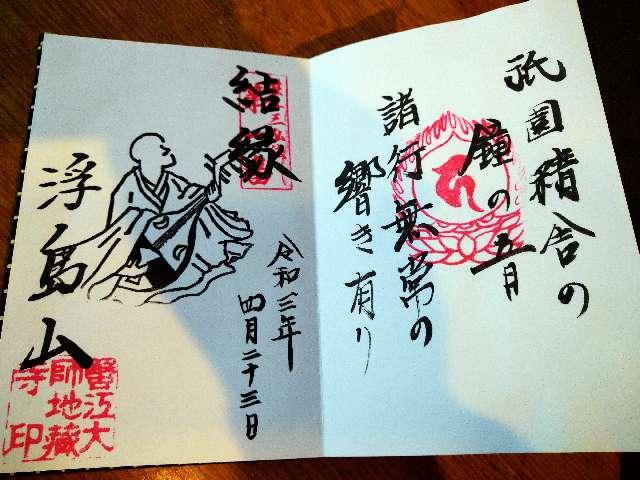 祇園精舎の
鐘の五月
諸行無常の
響き有り
結縁
令和三年
四月二十三日
浮島山
醫江大
師地蔵
寺印